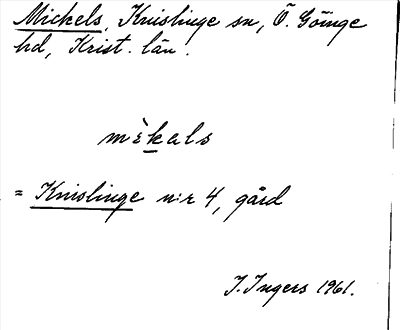 Mickels, Knislinge sn, Ö. Göinge
hd, Krist. län.
mὲkals
= Knislinge n:r 4, gård
I. Ingers 1961.